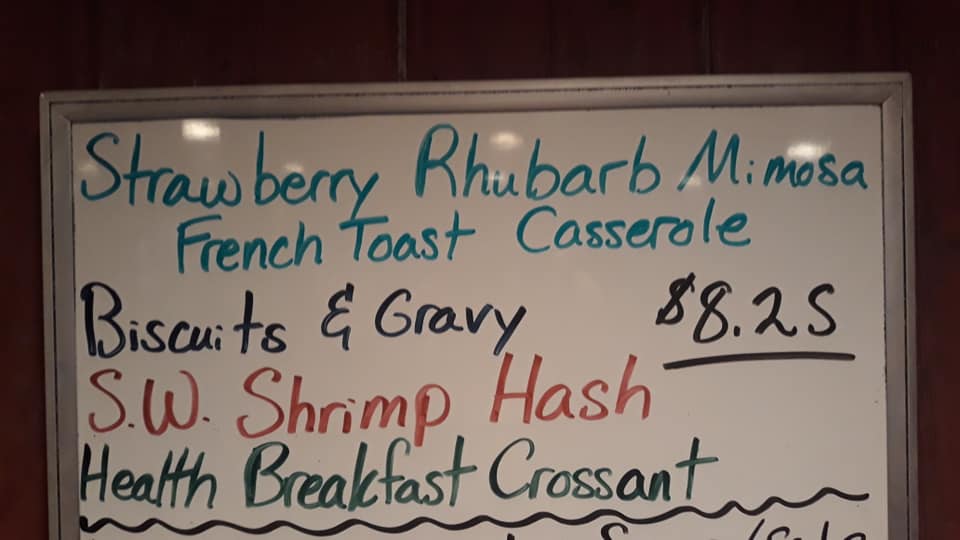 Strawberry Rhubarb Mimosa
French Toast Casserole
Biscuits & Gravy $8.25
S.W. Shrimp Hash
Health Breakfast Crossant